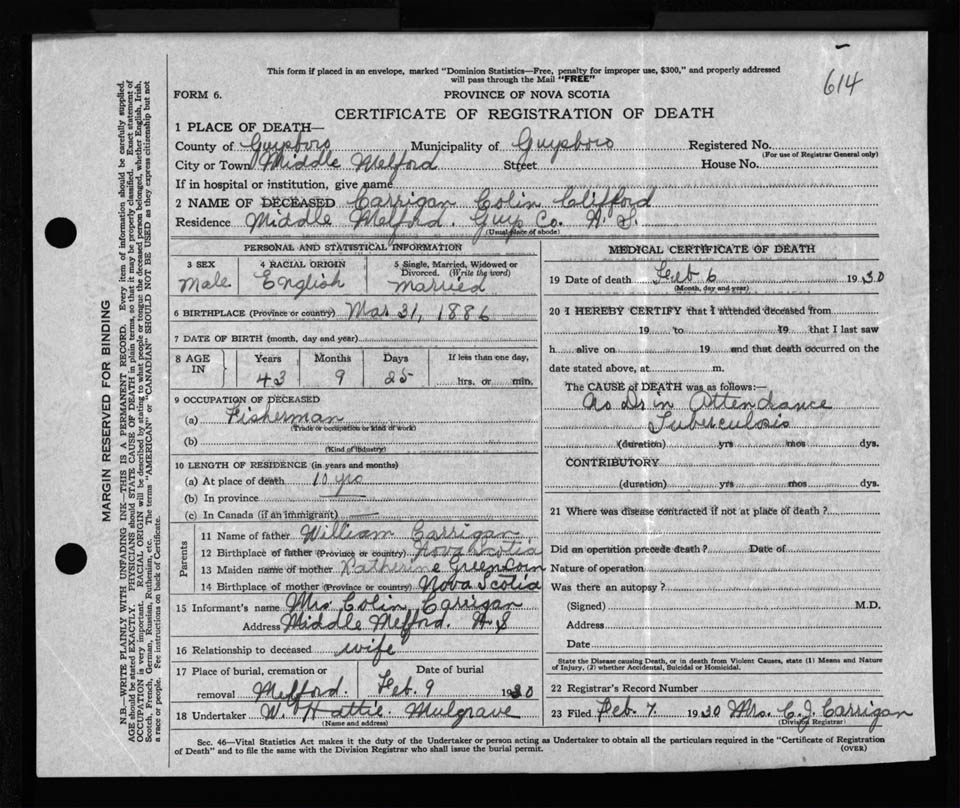 614
This form if placed in an envelope, marked "Dominion Statistics—Free, penalty for improper use, $300," and properly addressed
will pass through the Mail "FREE"
FORM 6.
PROVINCE OF NOVA SCOTIA
CERTIFICATE OF REGISTRATION OF DEATH
1 PLACE OF DEATH—
County of Guysboro Municipality of Guysboro Registered No.
(For use of Registrar General only)
City or Town Middle Melford Street House No.
If in hospital or institution, give name
2 NAME OF DECEASED Carrigan Colin Clifford
Residence Middle Melford. Guys Co. N. S.
(Usual place of abode)
PERSONAL AND STATISTICAL INFORMATION
3 SEX 4 RACIAL ORIGIN 5 Single, Married, Widowed or
Divorced. (Write the word)
Male English Married
6 BIRTHPLACE (Province or country) Mar 31, 1886
7 DATE OF BIRTH (month, day and year)
8 AGE IN Years Months Days If less than one day,
43 9 25 hrs. or min.
9 OCCUPATION OF DECEASED
(a) Fisherman
(Trade or occupation or kind of work)
(b)
(Kind of industry)
10 LENGTH OF RESIDENCE (in years and months)
(a) At place of death 10 yrs
(b) In province
(c) In Canada (if an immigrant) —
Parents
11 Name of father William Carrigan
12 Birthplace of father (Province or country) Nova Scotia
13 Maiden name of mother Katherine
14 Birthplace of mother (Province or country) Nova Scotia
15 Informant's name Mrs Colin Carrigan
Address Middle Melford. N S
16 Relationship to deceased wife
17 Place of burial, cremation or Date of burial
removal Melford. Feb. 9 1930
18 Undertaker W. Hattie. Mulgrave
(Name and address)
MEDICAL CERTIFICATE OF DEATH
19 Date of death Feb 6 1930
(Month, day and year)
20 I HEREBY CERTIFY that I attended deceased from
19 to 19 that I last saw
h alive on 19 and that death occurred on the
date stated above, at m.
The CAUSE OF DEATH was as follows:—
No Dr in Attendance
Tuberculosis
(duration) yrs mos dys.
CONTRIBUTORY
(duration) yrs mos dys.
21 Where was disease contracted if not at place of death?
Did an operation precede death? Date of
Nature of operation
Was there an autopsy?
(Signed) M.D.
Address
Date
State the Disease causing Death, or in death from Violent Causes, state (1) Means and Nature
of Injury, (2) whether Accidental, Suicidal or Homicidal.
22 Registrar's Record Number
23 Filed Feb. 7. 1930 Mrs. C. J. Carrigan
(Division Registrar)
Sec. 46—Vital Statistics Act makes it the duty of the Undertaker or person acting as Undertaker to obtain all the particulars required in the "Certificate of Registration
of Death" and to file the same with the Division Registrar who shall issue the burial permit.
(OVER)
MARGIN RESERVED FOR BINDING
N.B.—WRITE PLAINLY WITH UNFADING INK—THIS IS A PERMANENT RECORD. Every item of information should be carefully supplied.
AGE should be stated EXACTLY. PHYSICIANS should STATE CAUSE OF DEATH in plain terms, so that it may be properly classified. Exact statement of
OCCUPATION is very important. RACIAL ORIGIN will be described by stating to what people or tongue the deceased person belonged, whether English, Irish,
Scotch, French, German, Russian, Ruthenian, etc. The terms "AMERICAN" or "CANADIAN" SHOULD NOT BE USED as they express citizenship but not
a race or people. Fee instructions on back of Certificate.